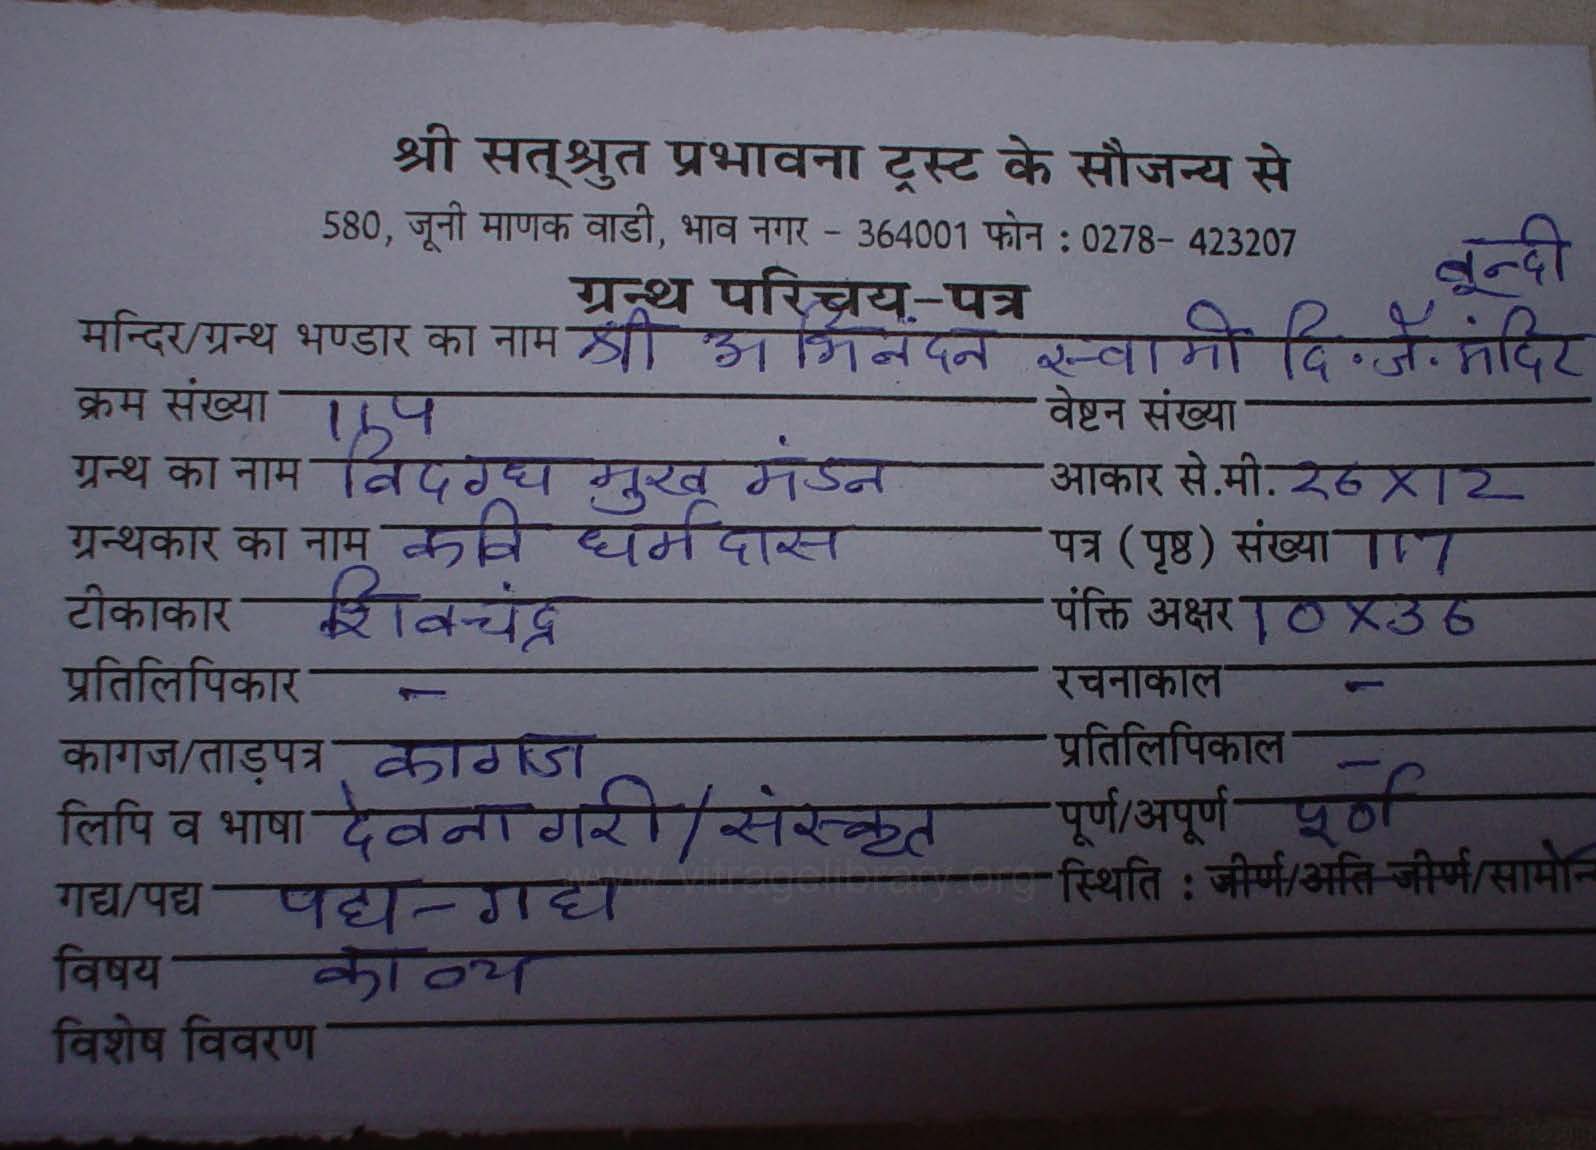 श्री सत्श्रुत प्रभावना ट्रस्ट के सौजन्य से
580, जूनी माणक वाडी, भाव नगर - 364001 फोन : 0278- 423207
बून्दी
ग्रन्थ परिचय-पत्र
मन्दिर/ग्रन्थ भण्डार का नाम श्री अभिनंदन स्वामी दि. जै. मंदिर
क्रम संख्या वेष्टन संख्या
ग्रन्थ का नाम विदग्ध मुख मंडन आकार से.मी. 26 X 12
ग्रन्थकार का नाम कवि धर्मदास पत्र (पृष्ठ) संख्या 117
टीकाकार शिवचंद्र पंक्ति अक्षर 10 X 36
प्रतिलिपिकार - रचनाकाल -
कागज/ताड़पत्र कागज प्रतिलिपिकाल -
लिपि व भाषा देवनागरी/संस्कृत पूर्ण/अपूर्ण पूर्ण
www.vitragelibrary.org
गद्य/पद्य पद्य-गद्य स्थिति : जीर्ण/अति जीर्ण/
विषय काव्य
विशेष विवरण